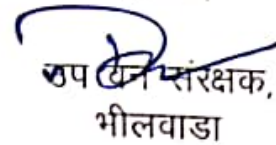 उप वन संरक्षक,
भीलवाडा